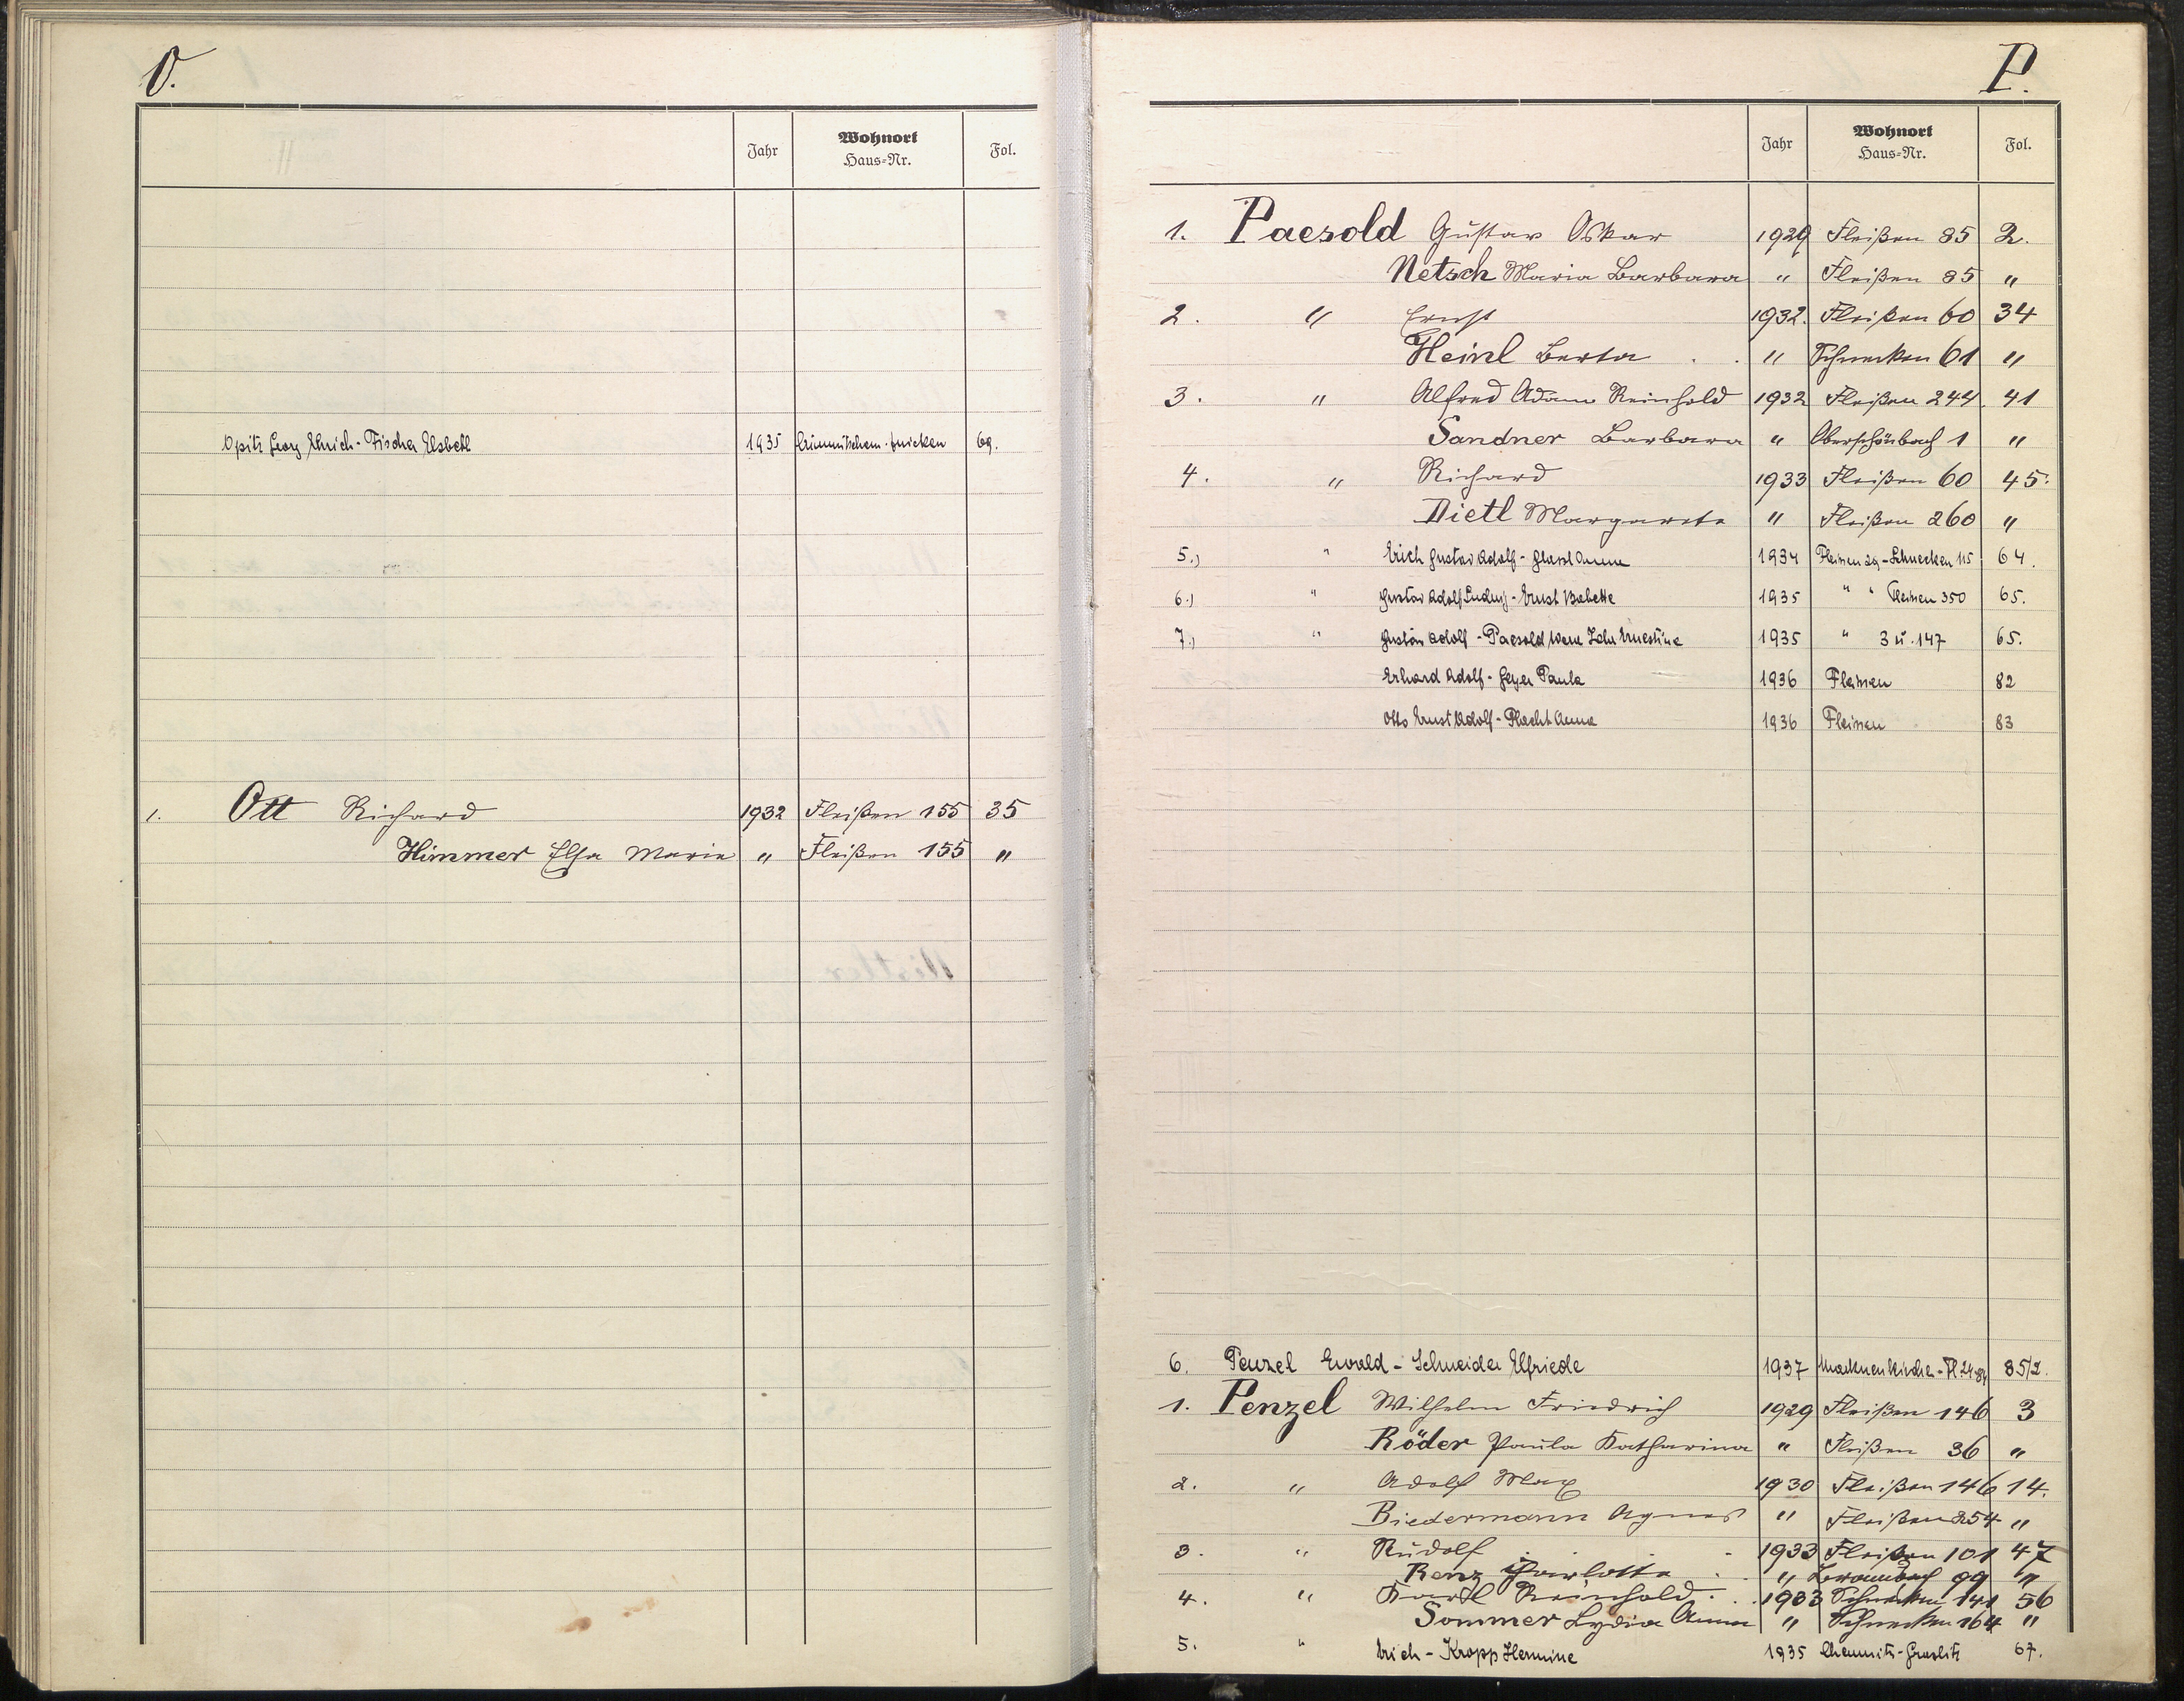 O.
Jahr Wohnort Haus-Nr. Fol.
Opitz Georg Ehrich - Fischer Elsbeth 1935 69.
1. Ott Richard 1932 Fleißen 155 35
Himmer Elsa Maria " Fleißen 155 "
P.
Jahr Wohnort Haus-Nr. Fol.
1. Paesold Gustav Oskar 1929 Fleißen 85 2.
Netsch Maria Barbara " Fleißen 85 "
2. " Ernst 1932. Fleißen 60 34
Heinl Berta . . " Schnecken 61 "
3. " Alfred Adam Reinhold 1932 Fleißen 244. 41
Sandner Barbara " Oberschönbach 1 "
4. " Richard 1933 Fleißen 60 45.
Dietl Margareta " Fleißen 260 "
5.) " Erich Gustav Adolf - Glassl Anna 1934 Fleissen 29 - Schnecken 115 64.
6.) " Gustav Adolf Ludwig - Ernst Babette 1935 " " Fleissen 350 65.
7.) " Gustav Adolf - Paesold Ernestine 1935 " 3 u. 147 65.
Erhard Adolf - Geyer Paula 1936 Fleissen 82
Otto Ernst Adolf - Placht Anna 1936 Fleissen 83
6. Penzel Ewald - Schneider Elfriede 1937 85/2.
1. Penzel Wilhelm Friedrich 1929 Fleißen 146 3
Röder Paula Katharina " Fleißen 36 "
2. " Adolf Max 1930 Fleißen 146 14.
Biedermann Agnes " Fleißen 254 "
3. " Rudolf . - 1933 Fleißen 101 47
Renz Charlotte . . " Brambach 99 "
4. " Karl Reinhold . . 1933 Schnecken 141 56
Sommer Lydia Anna " Schnecken 164 "
5. " Erich - Kropp Hermine 1935 Chemnitz - Graslitz 67.